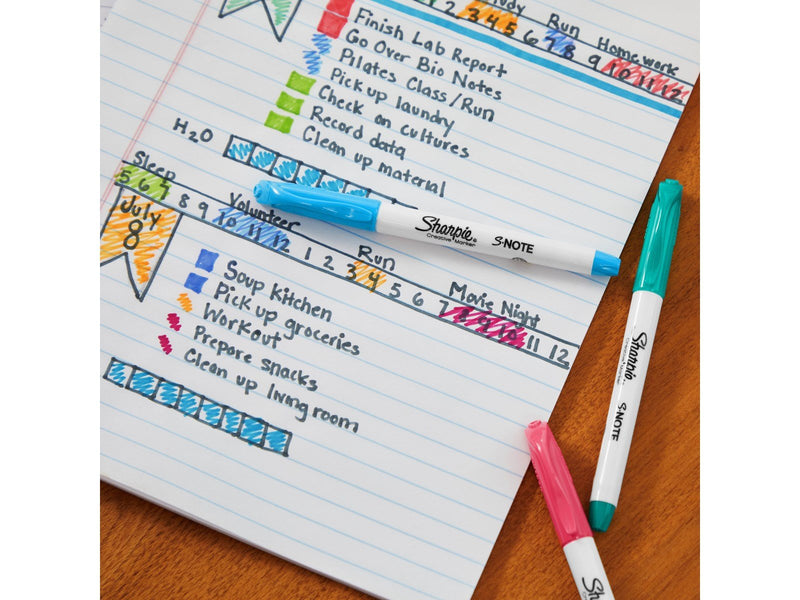 1 2 3 4 5 6 7 8 9 10 11 12
Study
Run
Homework
Finish Lab Report
Go Over Bio Notes
Pilates Class/Run
Pick up laundry
Check on cultures
Record data
Clean up material
H2O
Sleep
Volunteer
Run
Movie Night
5 6 7 8 9 10 11 12 1 2 3 4 5 6 7 8 9 10 11 12
July
8
Soup Kitchen
Pick up groceries
Workout
Prepare snacks
Clean up living room
Sharpie
Creative Marker
S·NOTE
Sharpie
Creative Marker
S·NOTE
Sharpie